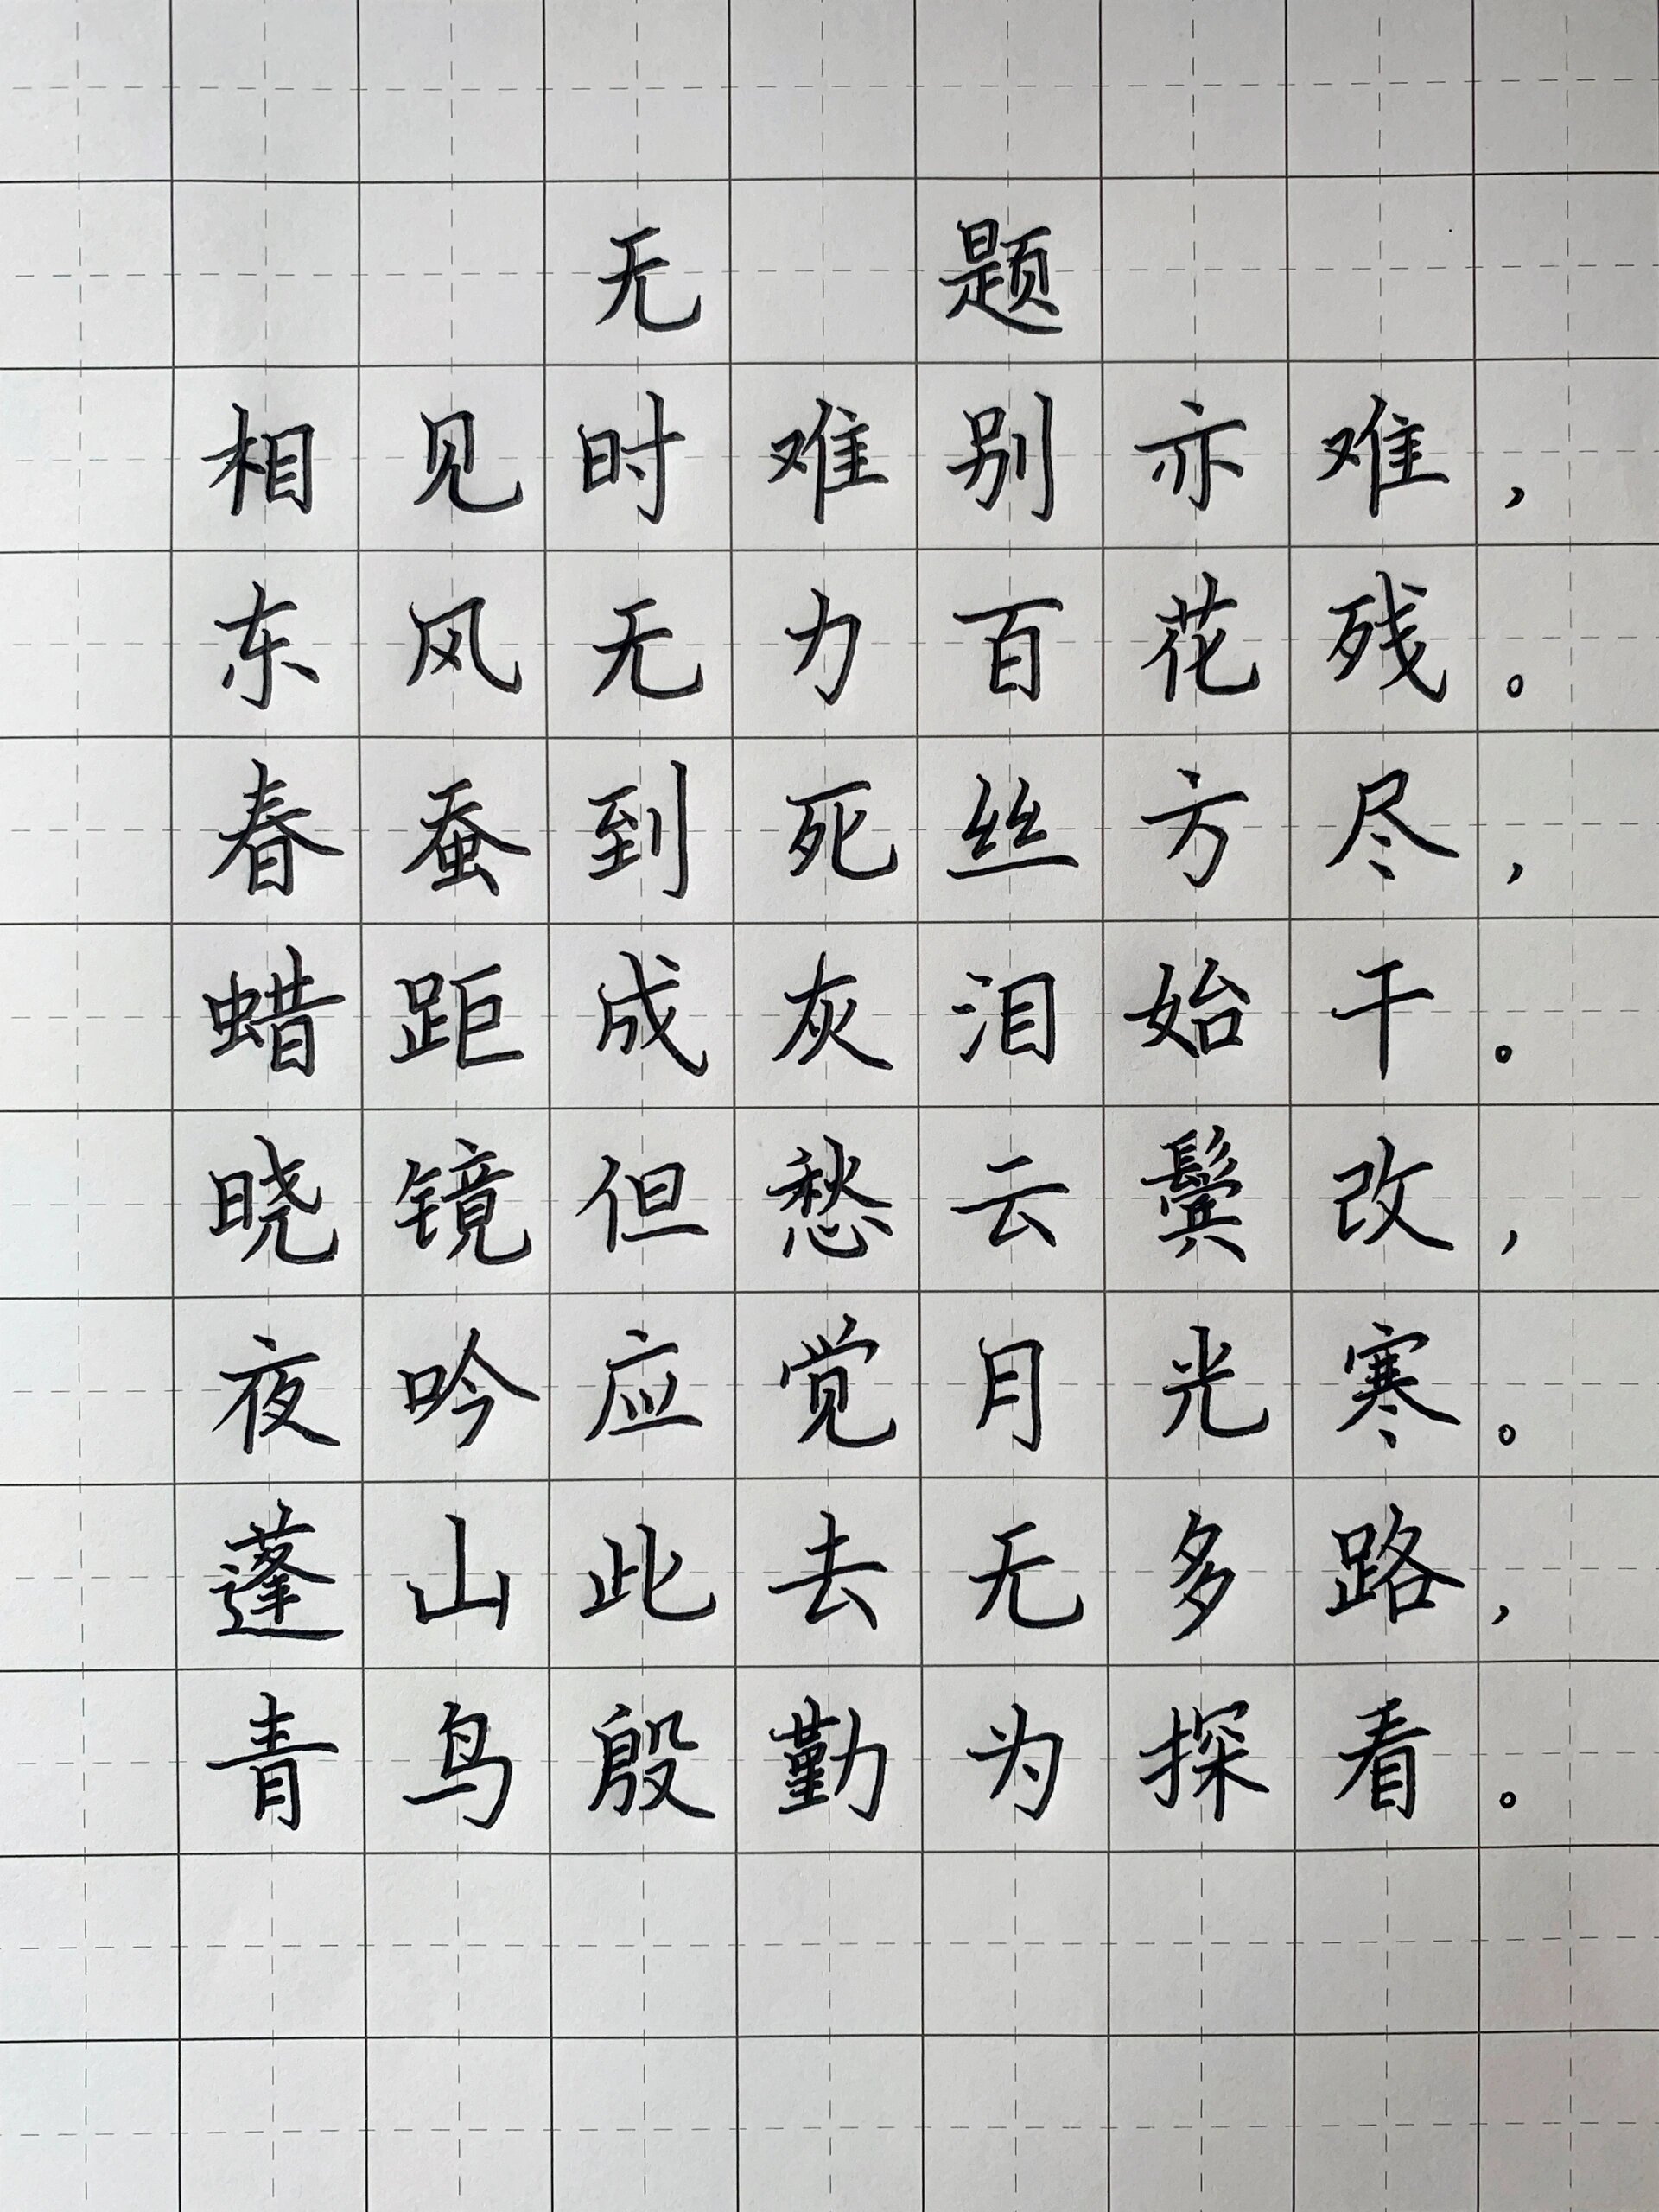 无题
相见时难别亦难，
东风无力百花残。
春蚕到死丝方尽，
蜡距成灰泪始干。
晓镜但愁云鬓改，
夜吟应觉月光寒。
蓬山此去无多路，
青鸟殷勤为探看。